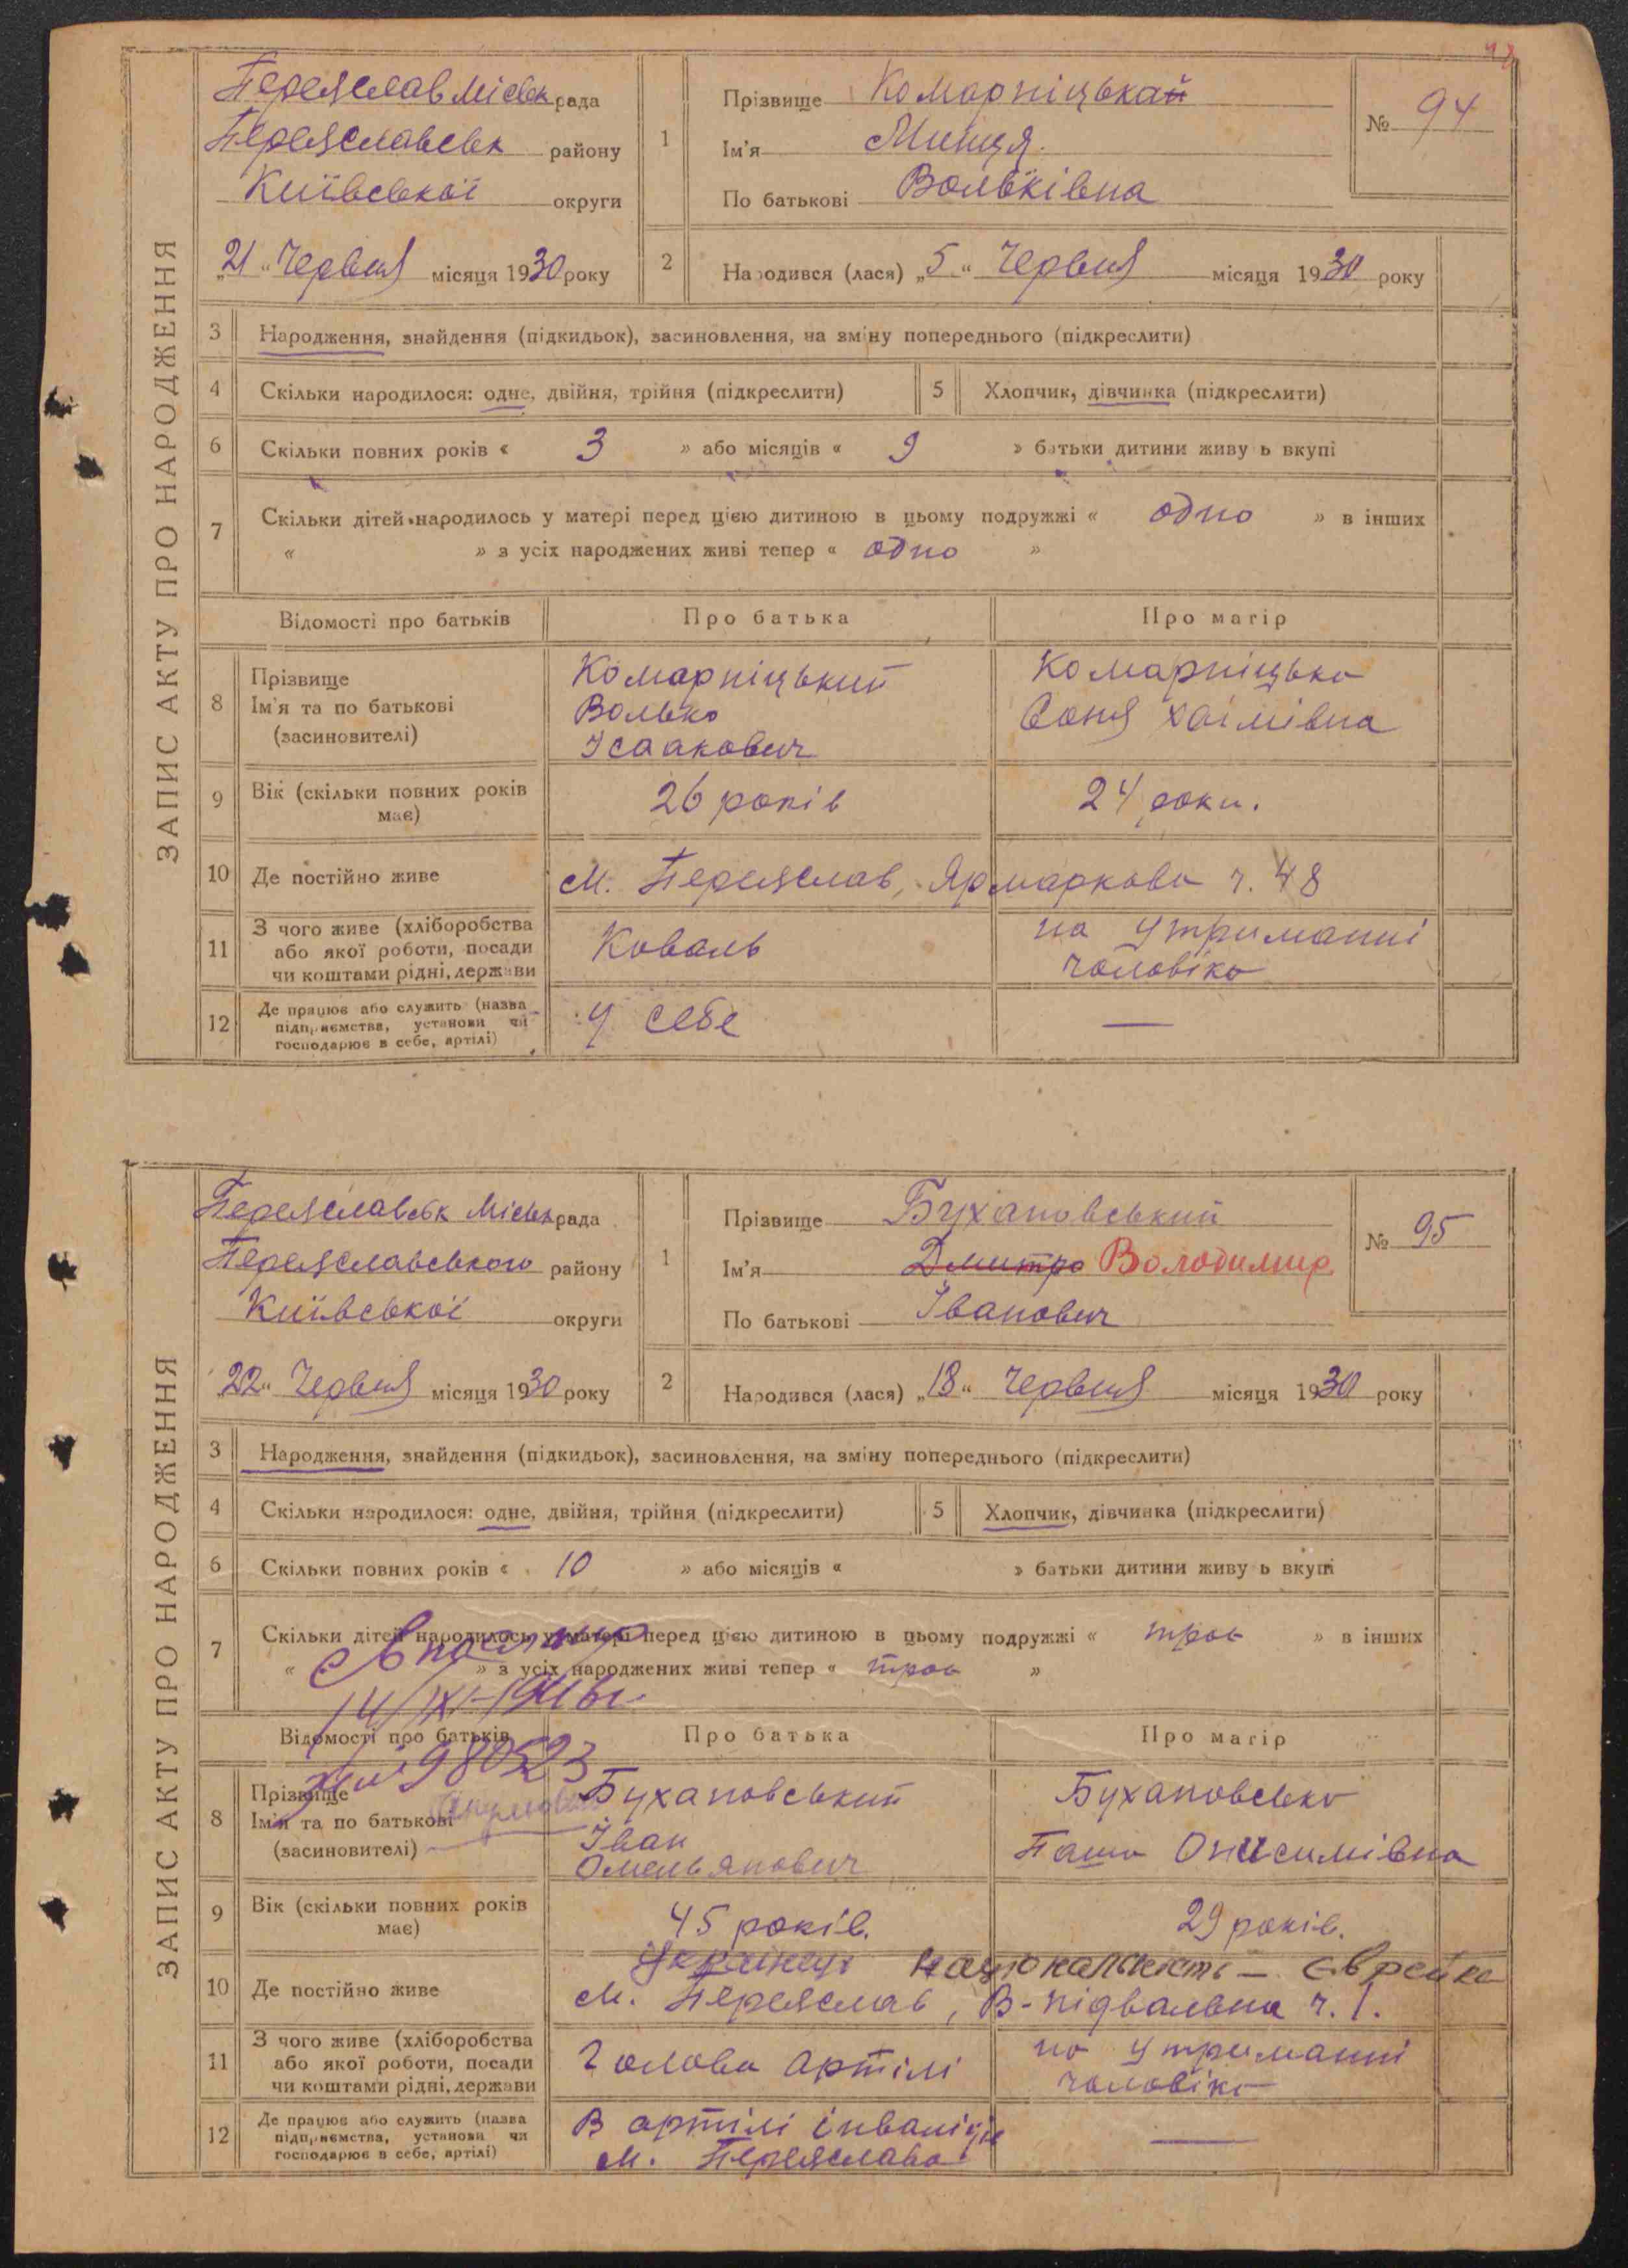 48
ЗАПИС АКТУ ПРО НАРОДЖЕННЯ
Переяслав міськ рада
Переяславськ району
Київської округи
„21“ Червня місяця 1930 року
1 Прізвище Комарніцькай
Ім'я Минця
По батькові Вольківна
№ 94
2 Народився (лася) „5“ Червня місяця 1930 року
3 Народження, знайдення (підкидьок), засиновлення, на зміну попереднього (підкреслити)
4 Скільки народилося: одне, двійня, трійня (підкреслити) 5 Хлопчик, дівчинка (підкреслити)
6 Скільки повних років « 3 » або місяців « 9 » батьки дитини живу ь вкупі
7 Скільки дітей народилось у матері перед цією дитиною в цьому подружжі « одно » в інших
« » з усіх народжених живі тепер « одно »
Відомості про батьків Про батька Про матір
8 Прізвище
Ім'я та по батькові
(засиновителі)
Комарніцький
Волько
Ісаакович
Комарніцька
Соня Хаімівна
9 Вік (скільки повних років
має)
26 років 24 роки.
10 Де постійно живе м. Переяслав, Ярмаркова ч. 48
11 З чого живе (хліборобства
або якої роботи, посади
чи коштами рідні, держави
Коваль
на утриманні
чоловіка
12 Де працює або служить (назва
підприємства, установи чи
господарює в себе, артілі)
У себе —
ЗАПИС АКТУ ПРО НАРОДЖЕННЯ
Переяславськ міськ рада
Переяславського району
Київської округи
„22“ Червня місяця 1930 року
1 Прізвище Бухановський
Ім'я Дмитро Володимир
По батькові Іванович
№ 95
2 Народився (лася) „18“ Червня місяця 1930 року
3 Народження, знайдення (підкидьок), засиновлення, на зміну попереднього (підкреслити)
4 Скільки народилося: одне, двійня, трійня (підкреслити) 5 Хлопчик, дівчинка (підкреслити)
6 Скільки повних років « 10 » або місяців « » батьки дитини живу ь вкупі
7 Скільки дітей народилось у матері перед цією дитиною в цьому подружжі « троє » в інших
« » з усіх народжених живі тепер « троє »
14/XI-1946г.
980523
Відомості про батьків Про батька Про матір
8 Прізвище
Ім'я та по батькові
(засиновителі)
Бухановський
Іван
Омельянович
Бухановська
Паша Онисимівна
9 Вік (скільки повних років
має)
45 років. 29 років.
Українець Національність — Єврейка
10 Де постійно живе м. Переяслав, В-підвальна ч. 1.
11 З чого живе (хліборобства
або якої роботи, посади
чи коштами рідні, держави
Голова артілі
на утриманні
чоловіка
12 Де працює або служить (назва
підприємства, установи чи
господарює в себе, артілі)
В артілі інвалідів
м. Переяслава —